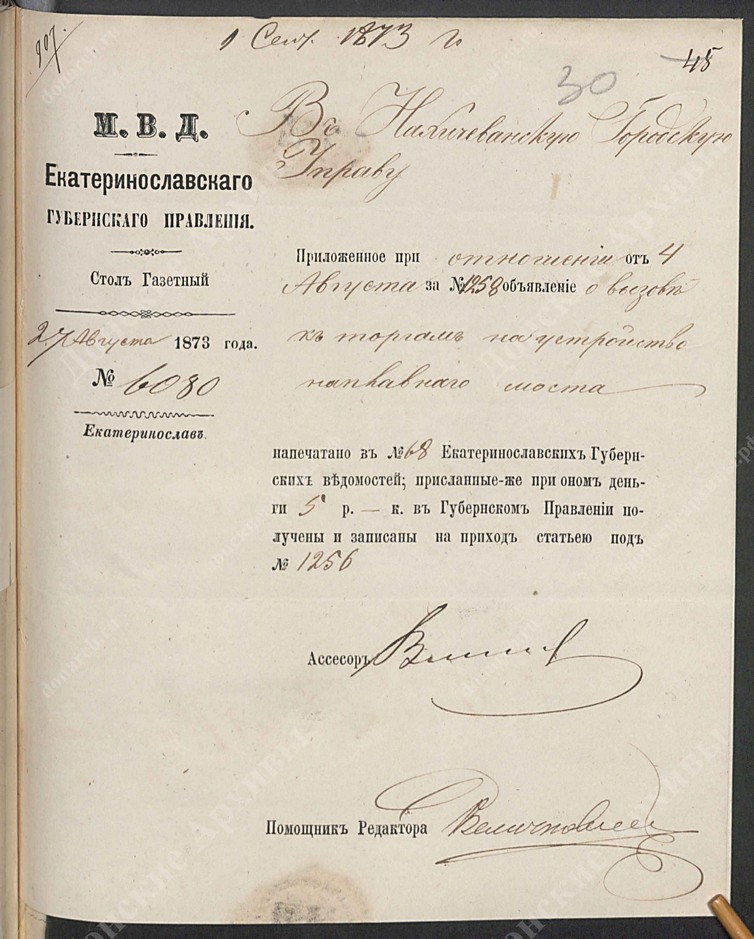 907.
1 Сент. 1873 го
45
30
М. В. Д.
Екатеринославскаго
ГУБЕРНСКАГО ПРАВЛЕНІЯ.
Столъ Газетный
27 Августа 1873 года.
№ 6080
Екатеринославъ.
Въ Нахичеванскую Городскую
Управу
Приложенное при отношеніи отъ 4
Августа за № 1258 объявленіе о вызовѣ
къ торгамъ на устройство
наплавнаго моста
напечатано въ № 68 Екатеринославскихъ Губерн-
скихъ вѣдомостей; присланные-же при ономъ день-
ги 5 р. — к. въ Губернскомъ Правленіи по-
лучены и записаны на приходъ статьею подъ
№ 1256
Ассесоръ
Помощникъ Редактора